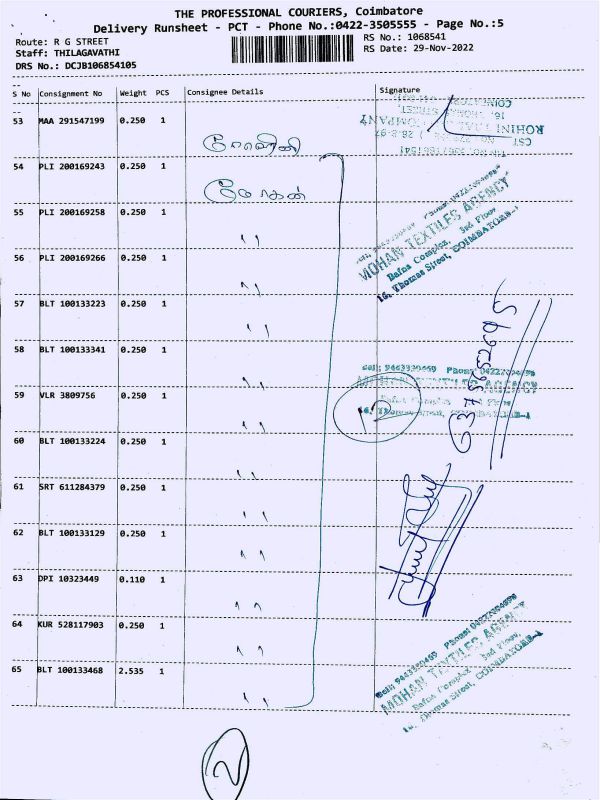 THE PROFESSIONAL COURIERS, Coimbatore
Delivery Runsheet - PCT - Phone No.:0422-3505555 - Page No.:5
Route: R G STREET
Staff: THILAGAVATHI
DRS No.: DCJB106854105
RS No.: 1068541
RS Date: 29-Nov-2022
S No Consignment No Weight PCS Consignee Details Signature
53 MAA 291547199 0.250 1
ரோஹினி
54 PLI 200169243 0.250 1
மோகன்
55 PLI 200169258 0.250 1
''
56 PLI 200169266 0.250 1
''
57 BLT 100133223 0.250 1
''
58 BLT 100133341 0.250 1
''
59 VLR 3809756 0.250 1
''
60 BLT 100133224 0.250 1
''
61 SRT 611284379 0.250 1
''
62 BLT 100133129 0.250 1
''
63 DPI 10323449 0.110 1
''
64 KUR 528117903 0.250 1
''
65 BLT 100133468 2.535 1
''
MOHAN TEXTILES AGENCY
Bafna Complex, 3rd Floor
16, Thomas Street, COIMBATORE-1
6374565269
Cell: 9443330469 Phone: 04222394898
MOHAN TEXTILES AGENCY
Bafna Complex 3rd Floor
16, Thomas Street, COIMBATORE-1
12
MOHAN TEXTILES AGENCY
Bafna Complex 3rd Floor,
16, Thomas Street, COIMBATORE-1
2